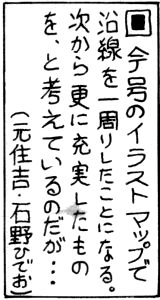 ▣ 今号のイラストマップで
沿線を一周りしたことになる。
次から更に充実したもの
を、と考えているのだが‥
（元住吉・石野ひでお）